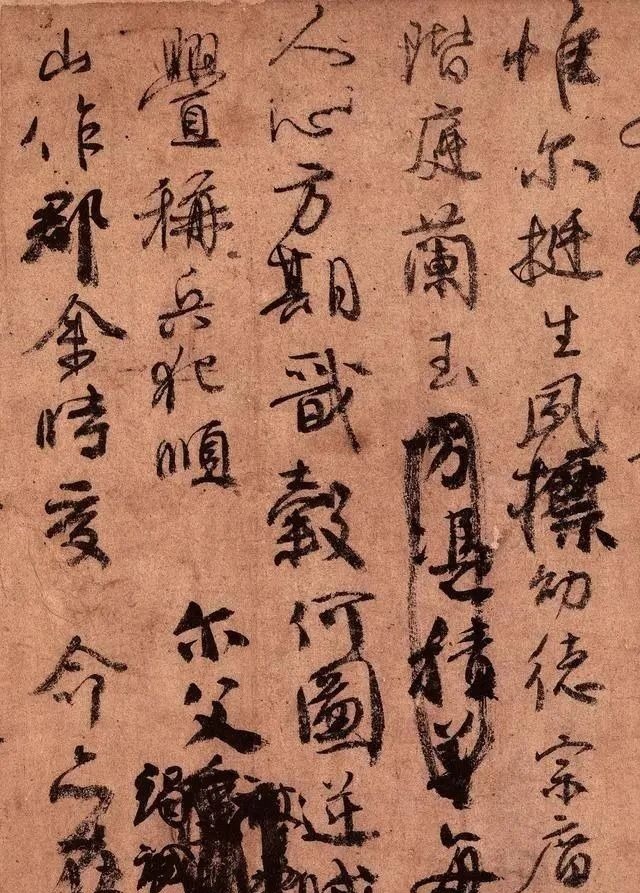 惟尔挺生夙標幼德宗廟
階庭蘭玉方憑積善每
人心方期戩穀何圖逆賊
釁稱兵犯順尔父竭誠
山作郡余時受命亦在